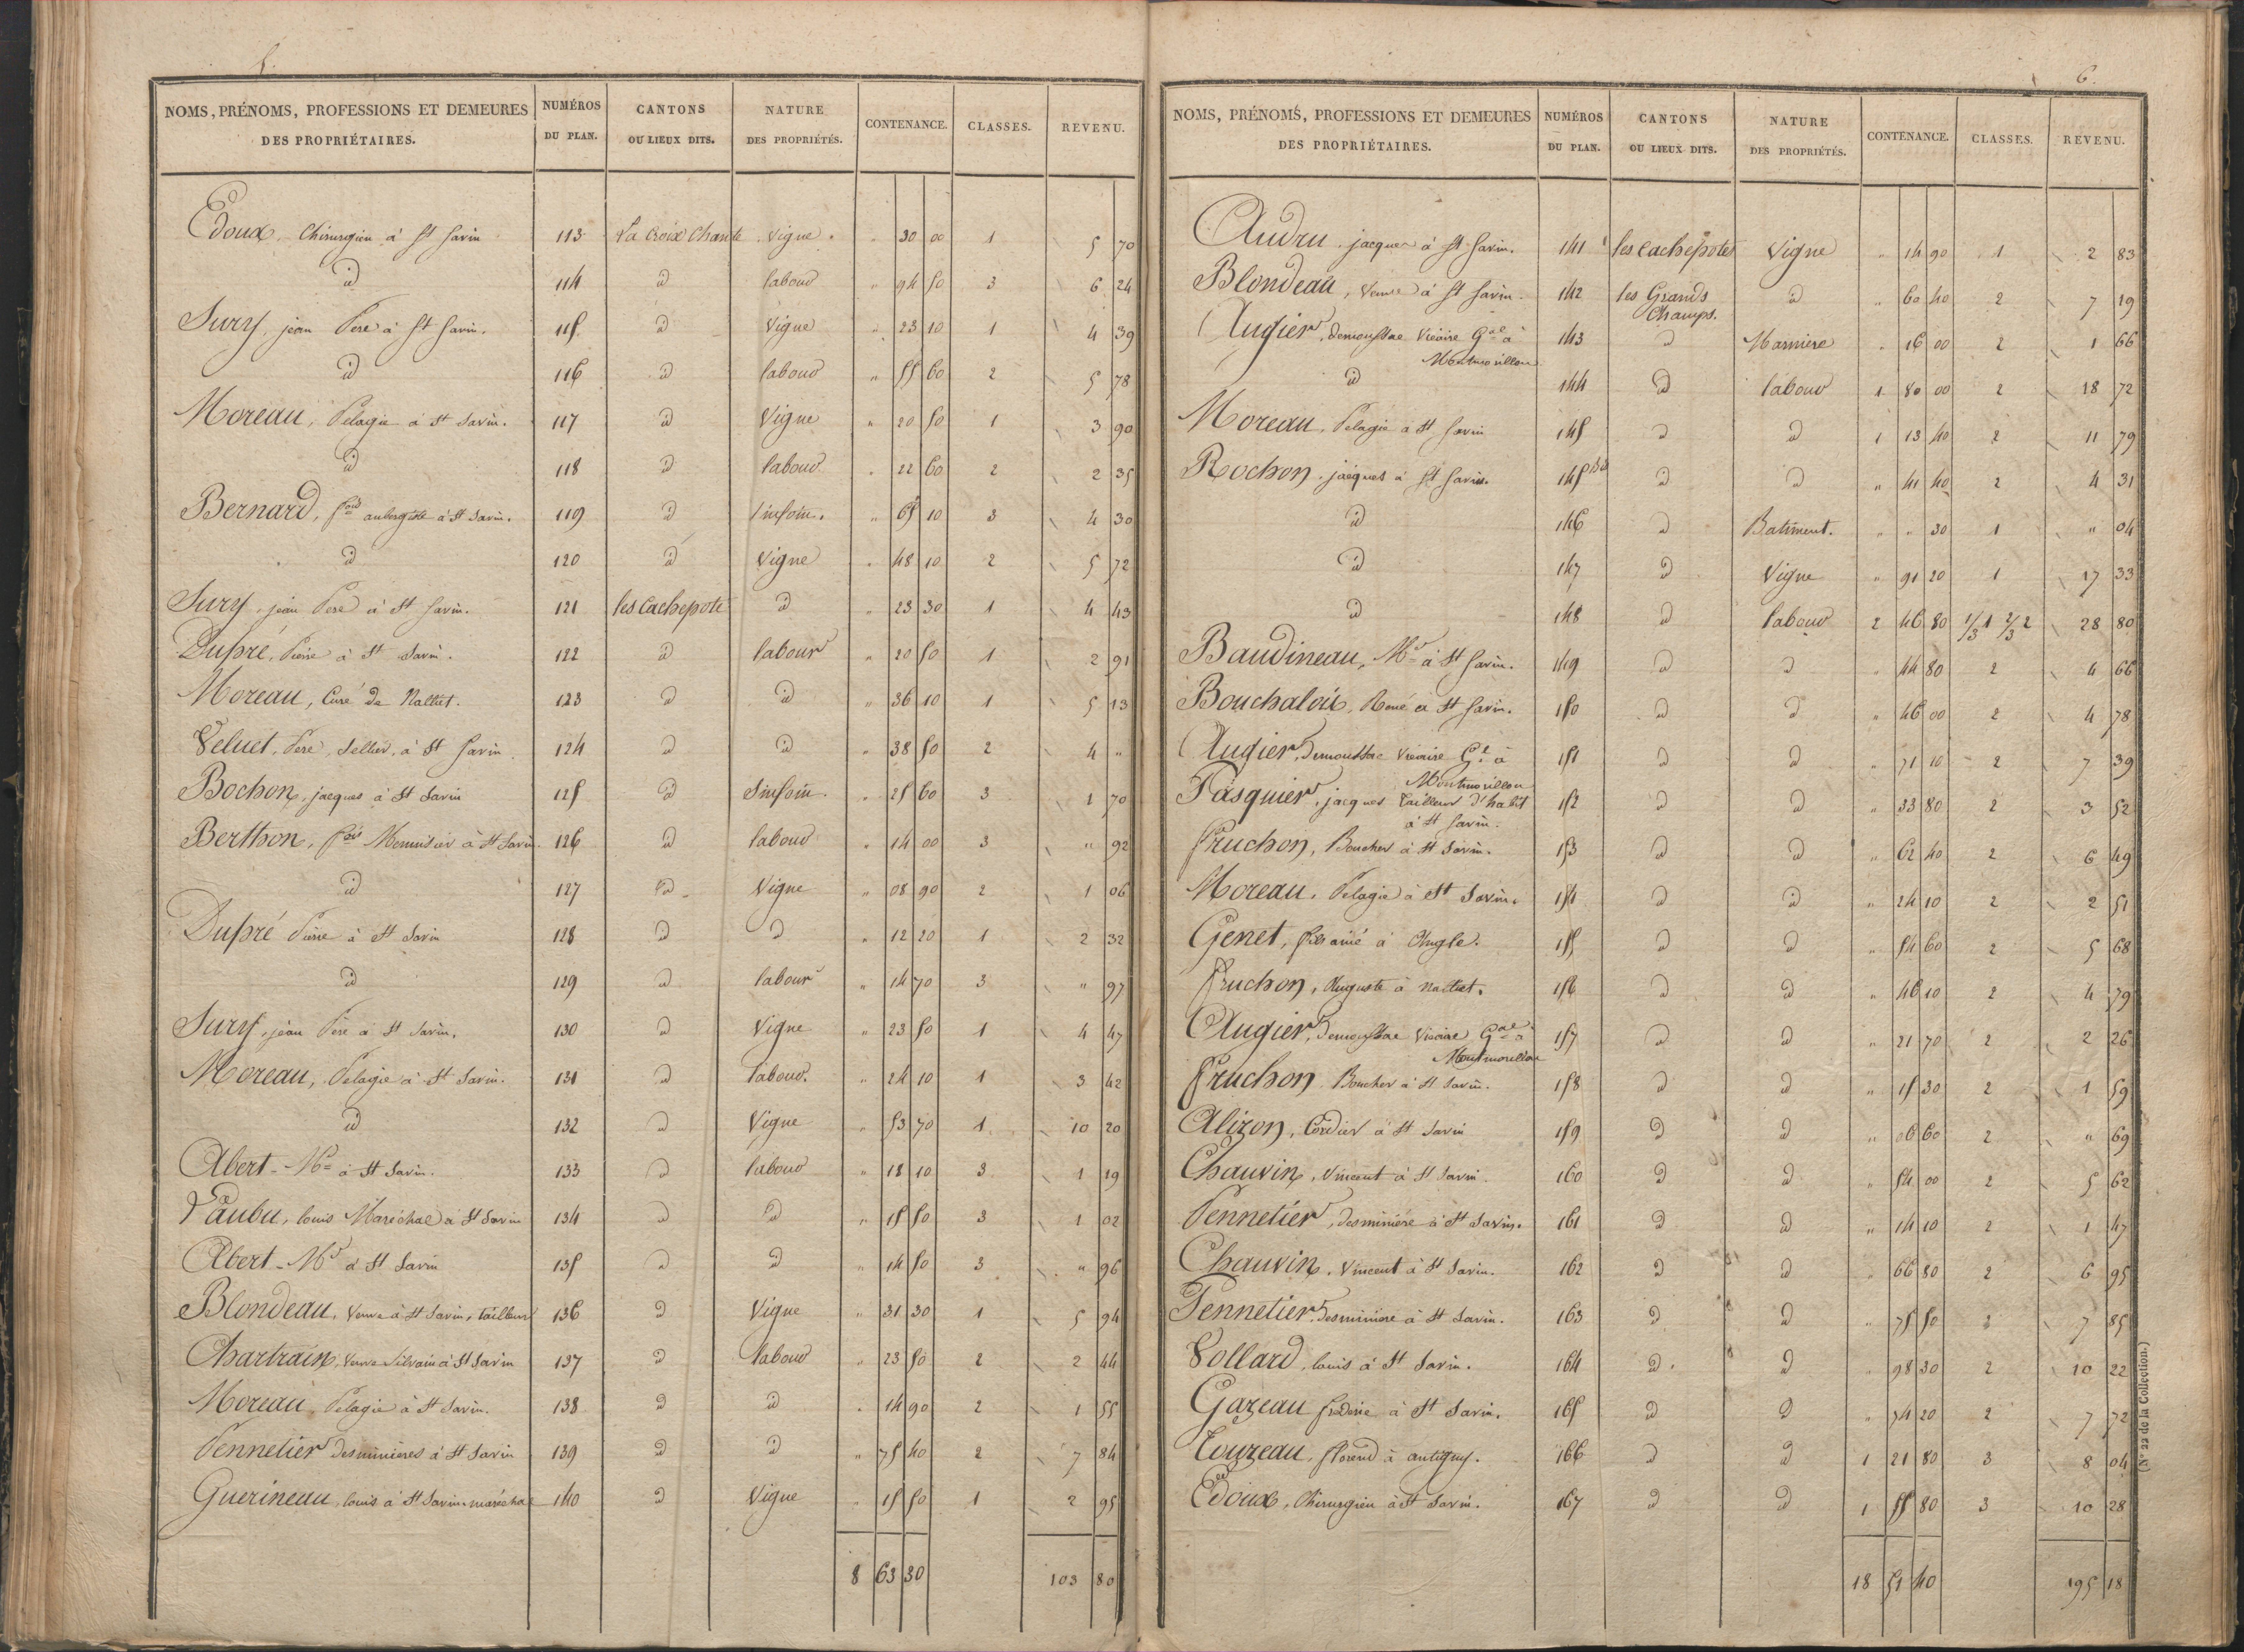 5.
NOMS, PRÉNOMS, PROFESSIONS ET DEMEURES DES PROPRIÉTAIRES. NUMÉROS DU PLAN. CANTONS OU LIEUX DITS. NATURE DES PROPRIÉTÉS. CONTENANCE. CLASSES. REVENU.
Edoux, Chirurgien à St Savin 113 La Croix Chante Vigne " 30 00 1 5 70
id 114 id labour " 94 50 3 6 24
Sury, jean Pere à St Savin. 115 id Vigne " 23 10 1 4 39
id 116 id labour " 55 60 2 5 78
Moreau, Pelagie à St Savin. 117 id Vigne " 20 50 1 3 90
id 118 id labour " 22 60 2 2 35
Bernard, fois aubergiste à St Savin. 119 id sinfoin. " 65 10 3 4 30
id 120 id Vigne " 48 10 2 5 72
Sury, jean Pere à St Savin. 121 les Cachepote id " 23 30 1 4 43
Dupré, Pierre à St Savin. 122 id labour " 20 50 1 2 91
Moreau, Curé de Nalliet. 123 id id " 36 10 1 5 13
Veluet, Pere, Sellier, à St Savin 124 id id " 38 50 2 4 "
Bochon, jacques à St Savin 125 id Sinfoin. " 25 60 3 1 70
Berthon, fois Menuisier à St Savin. 126 id labour " 14 00 3 " 92
id 127 id Vigne " 08 90 2 1 06
Dupré Pierre à St Savin 128 id id " 12 20 1 2 32
id 129 id labour " 14 70 3 " 97
Sury, jean Pere à St Savin. 130 id Vigne " 23 50 1 4 47
Moreau, Pelagie à St Savin. 131 id labour. " 24 10 1 3 42
id 132 id Vigne " 53 70 1 10 20
Abert - Md à St Savin. 133 id labour " 18 10 3 1 19
Vaubu, louis Maréchal à St Savin 134 id id " 15 50 3 1 02
Abert - Md à St Savin 135 id id " 14 50 3 " 96
Blondeau, Veuve à St Savin, tailleur 136 id Vigne " 31 30 1 5 94
Chartrain, Veuve Silvain à St Savin 137 id labour " 23 50 2 2 44
Moreau Pelagie à St Savin. 138 id id " 14 90 2 1 55
Pennetier desminieres à St Savin 139 id id " 75 40 2 7 84
Guerineau, louis à St Savin. maréchal 140 id Vigne " 15 50 1 2 95
8 63 30 103 80
6.
NOMS, PRÉNOMS, PROFESSIONS ET DEMEURES DES PROPRIÉTAIRES. NUMÉROS DU PLAN. CANTONS OU LIEUX DITS. NATURE DES PROPRIÉTÉS. CONTENANCE. CLASSES. REVENU.
Audru, jacques à St Savin. 141 les Cachepotes Vigne " 14 90 1 2 83
Blondeau, Veuve à St Savin. 142 les Grands Champs. id " 60 40 2 7 19
Augier, demoussac Vicaire Gal à Montmorillon 143 id Marniere " 16 00 2 1 66
id 144 id labour 1 80 00 2 18 72
Moreau, Pelagie à St Savin 145 id id 1 13 40 2 11 79
Rochon, jacques à St Savin. 145 bis id id " 41 40 2 4 31
id 146 id Batiment. " " 30 1 " 04
id 147 id Vigne " 91 20 1 17 33
id 148 id labour 2 46 80 1/3 1 2/3 2 28 80
Baudineau, Md à St Savin. 149 id id " 44 80 2 4 66
Bouchalois, René à St Savin. 150 id id " 46 00 2 4 78
Augier, Demoussac Vicaire Gl à Montmorillon 151 id id " 71 10 2 7 39
Pasquier, jacques tailleur d'habit à St Savin. 152 id id " 33 80 2 3 52
fruchon, Boucher à St Savin. 153 id id " 62 40 2 6 49
Moreau, Pelagie à St Savin. 154 id id " 24 10 2 2 51
Genet, fils aîné à Angle. 155 id id " 54 60 2 5 68
fruchon, Auguste à nalliet. 156 id id " 46 10 2 4 79
Augier, Demoussac Vicaire Gal à Montmorillon 157 id id " 21 70 2 2 26
fruchon Boucher à St Savin. 158 id id " 15 30 2 1 59
Alizon, Cordier à St Savin 159 id id " 06 60 2 " 69
Chauvin, Vincent à St Savin. 160 id id " 54 00 2 5 62
Pennetier, desminiére à St Savin. 161 id id " 14 10 2 1 47
Chauvin, Vincent à St Savin. 162 id id " 66 80 2 6 95
Pennetier, desminiere à St Savin. 163 id id " 75 50 2 7 85
Vollard, louis à St Savin. 164 id id " 98 30 2 10 22
Gazeau frederic à St Savin. 165 id id " 74 20 2 7 72
Touzeau, florend à antigny. 166 id id 1 21 80 3 8 04
Edoux, Chirurgien à St Savin. 167 id id 1 55 80 3 10 28
18 51 40 195 18
(N° 22 de la Collection.)